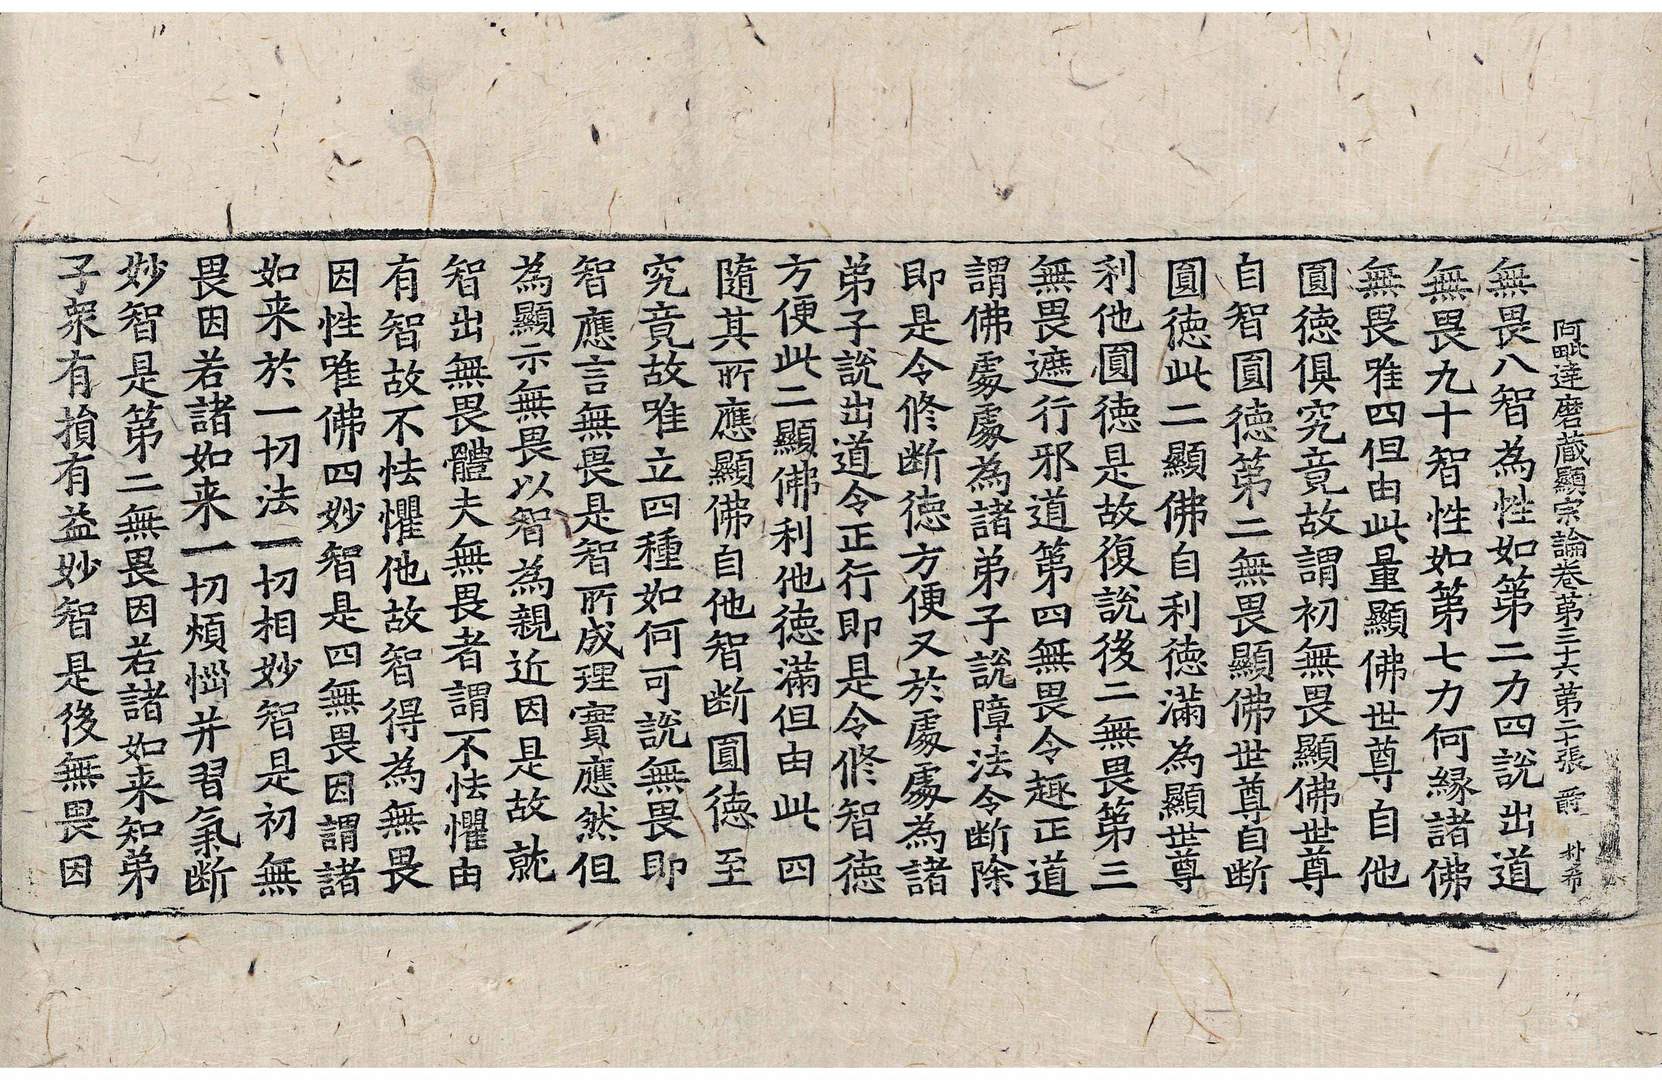 阿毗達磨藏顯宗論卷第三十六 第二十張 爵 朴希
無畏八智為性如第二力四說出道
無畏九十智性如第七力何緣諸佛
無畏唯四但由此量顯佛世尊自他
圓德俱究竟故謂初無畏顯佛世尊
自智圓德第二無畏顯佛世尊自断
圓德此二顯佛自利德滿為顯世尊
利他圓德是故復說後二無畏第三
無畏遮行邪道第四無畏令趣正道
謂佛處處為諸弟子說障法令断除
即是令修断德方便又於處處為諸
弟子說出道令正行即是令修智德
方便此二顯佛利他德滿但由此四
隨其所應顯佛自他智断圓德至
究竟故唯立四種如何可說無畏即
智應言無畏是智所成理實應然但
為顯示無畏以智為親近因是故就
智出無畏體夫無畏者謂不怯懼由
有智故不怯懼他故智得為無畏
因性唯佛四妙智是四無畏因謂諸
如来於一切法一切相妙智是初無
畏因若諸如来一切煩惱并習氣断
妙智是第二無畏因若諸如来知弟
子衆有損有益妙智是後無畏因